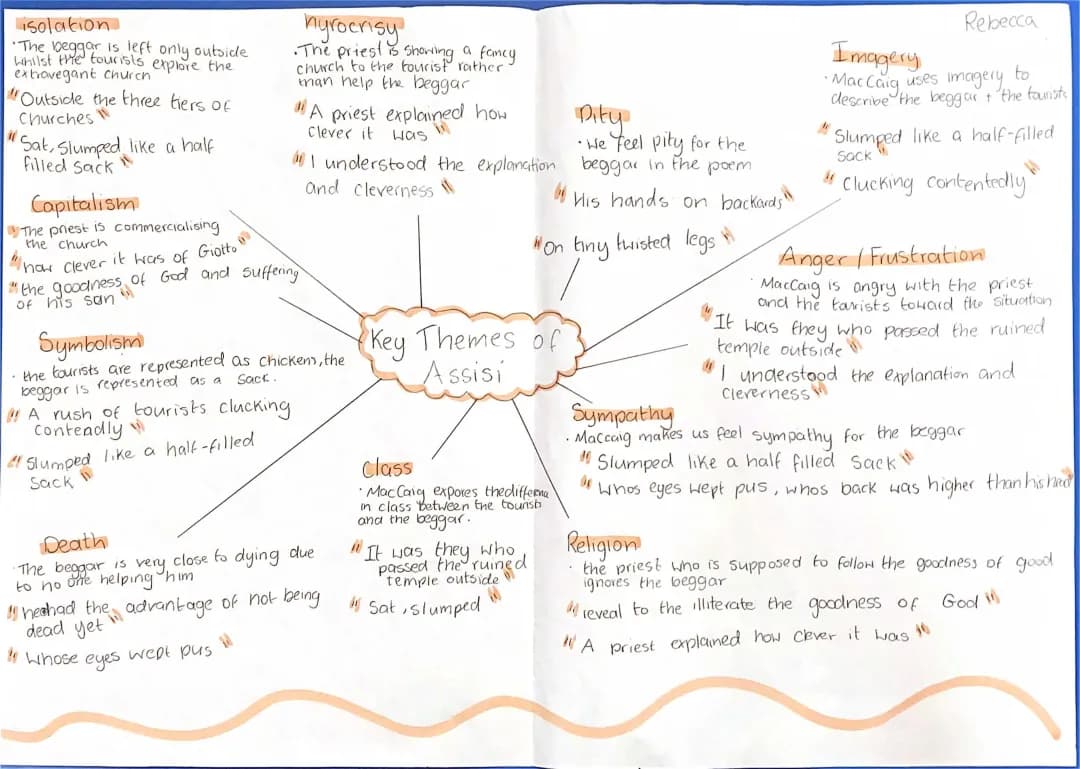 isolation
·The beggar is left only outside
whilst the tourists explore the
extravegant church
"Outside the three tiers of
churches"
"Sat, slumped like a half
filled sack"
hyrocrisy
·The priest is showing a fancy
church to the tourist rather
than help the beggar
"A priest explained how
clever it was"
"I understood the explanation
and cleverness"
Rebecca
Imagery
·MacCaig uses imagery to
describe the beggar + the tourists
"Slumped like a half-filled
sack"
"Clucking contentedly"
Pity
·We feel pity for the
beggar in the poem
"His hands on backards"
"On tiny twisted legs"
Capitalism
"The priest is commercialising
the church
"how clever it was of Giotto"
"the goodness of God and suffering
of his son"
Anger/Frustration
·MacCaig is angry with the priest
and the tourists toward the situation
"It was they who passed the ruined
temple outside"
"I understood the explanation and
cleverness"
Key Themes of
Assisi
Symbolism
·the tourists are represented as chickens, the
beggar is represented as a sack.
"A rush of tourists clucking
contendly"
"Slumped like a half-filled
sack"
Sympathy
·Maccaig makes us feel sympathy for the beggar
"Slumped like a half filled sack"
"Whos eyes wept pus, whos back was higher than his head"
Class
·MacCaig expores the
in class between the tourists
and the beggar.
"It was they who
passed the ruined
temple outside"
"Sat, slumped"
Death
·The beggar is very close to dying due
to no one helping him
"he had the advantage of not being
dead yet"
"Whose eyes wept pus"
Religion
·the priest who is supposed to follow the goodness of good
ignores the beggar
"reveal to the illiterate the goodness of God"
"A priest explained how clever it was"